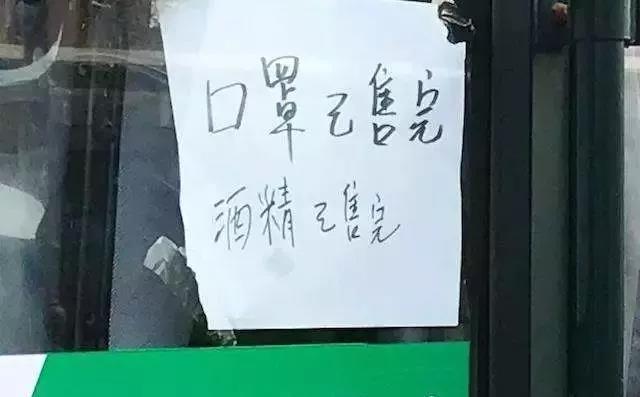 口罩已售完
酒精已售完